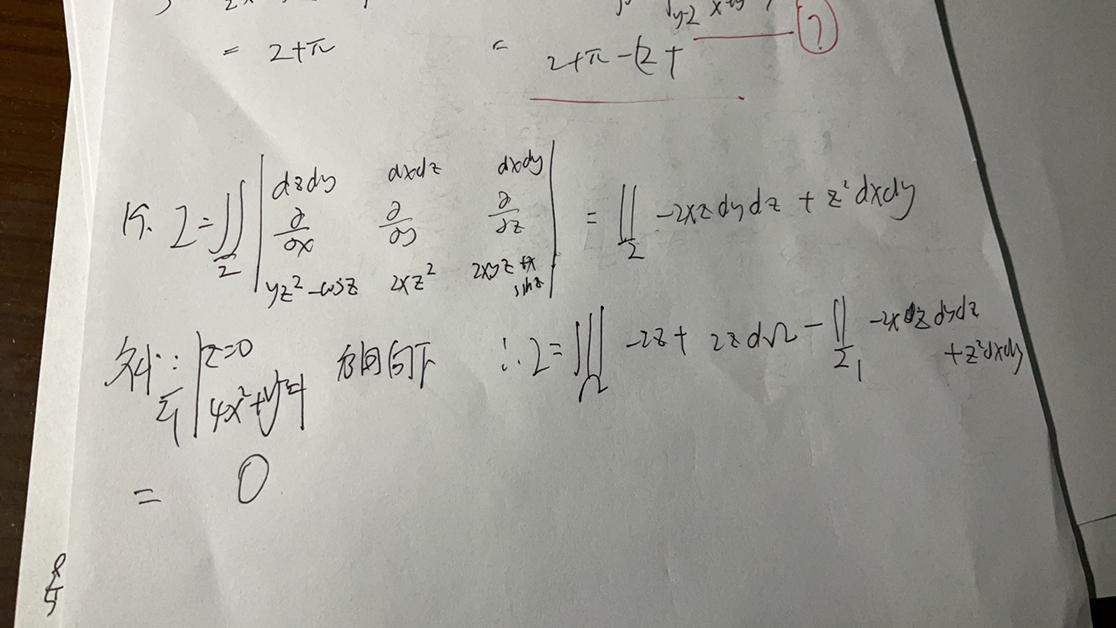 = 2+π
= 2+π-(2+
?
19. I=∬_Σ | dzdy dxdz dxdy ; ∂/∂x ∂/∂y ∂/∂z ; yz²-cosz 2xz² 2xyz+x sinz | = ∬_Σ -2xz dydz + z²dxdy
补: Σ₁ | z=0 ; 4x²+y²=4 方向向下 ∴ I=∭_Ω -2z+2z dΩ - ∬_Σ₁ -2xz dydz + z²dxdy
= 0